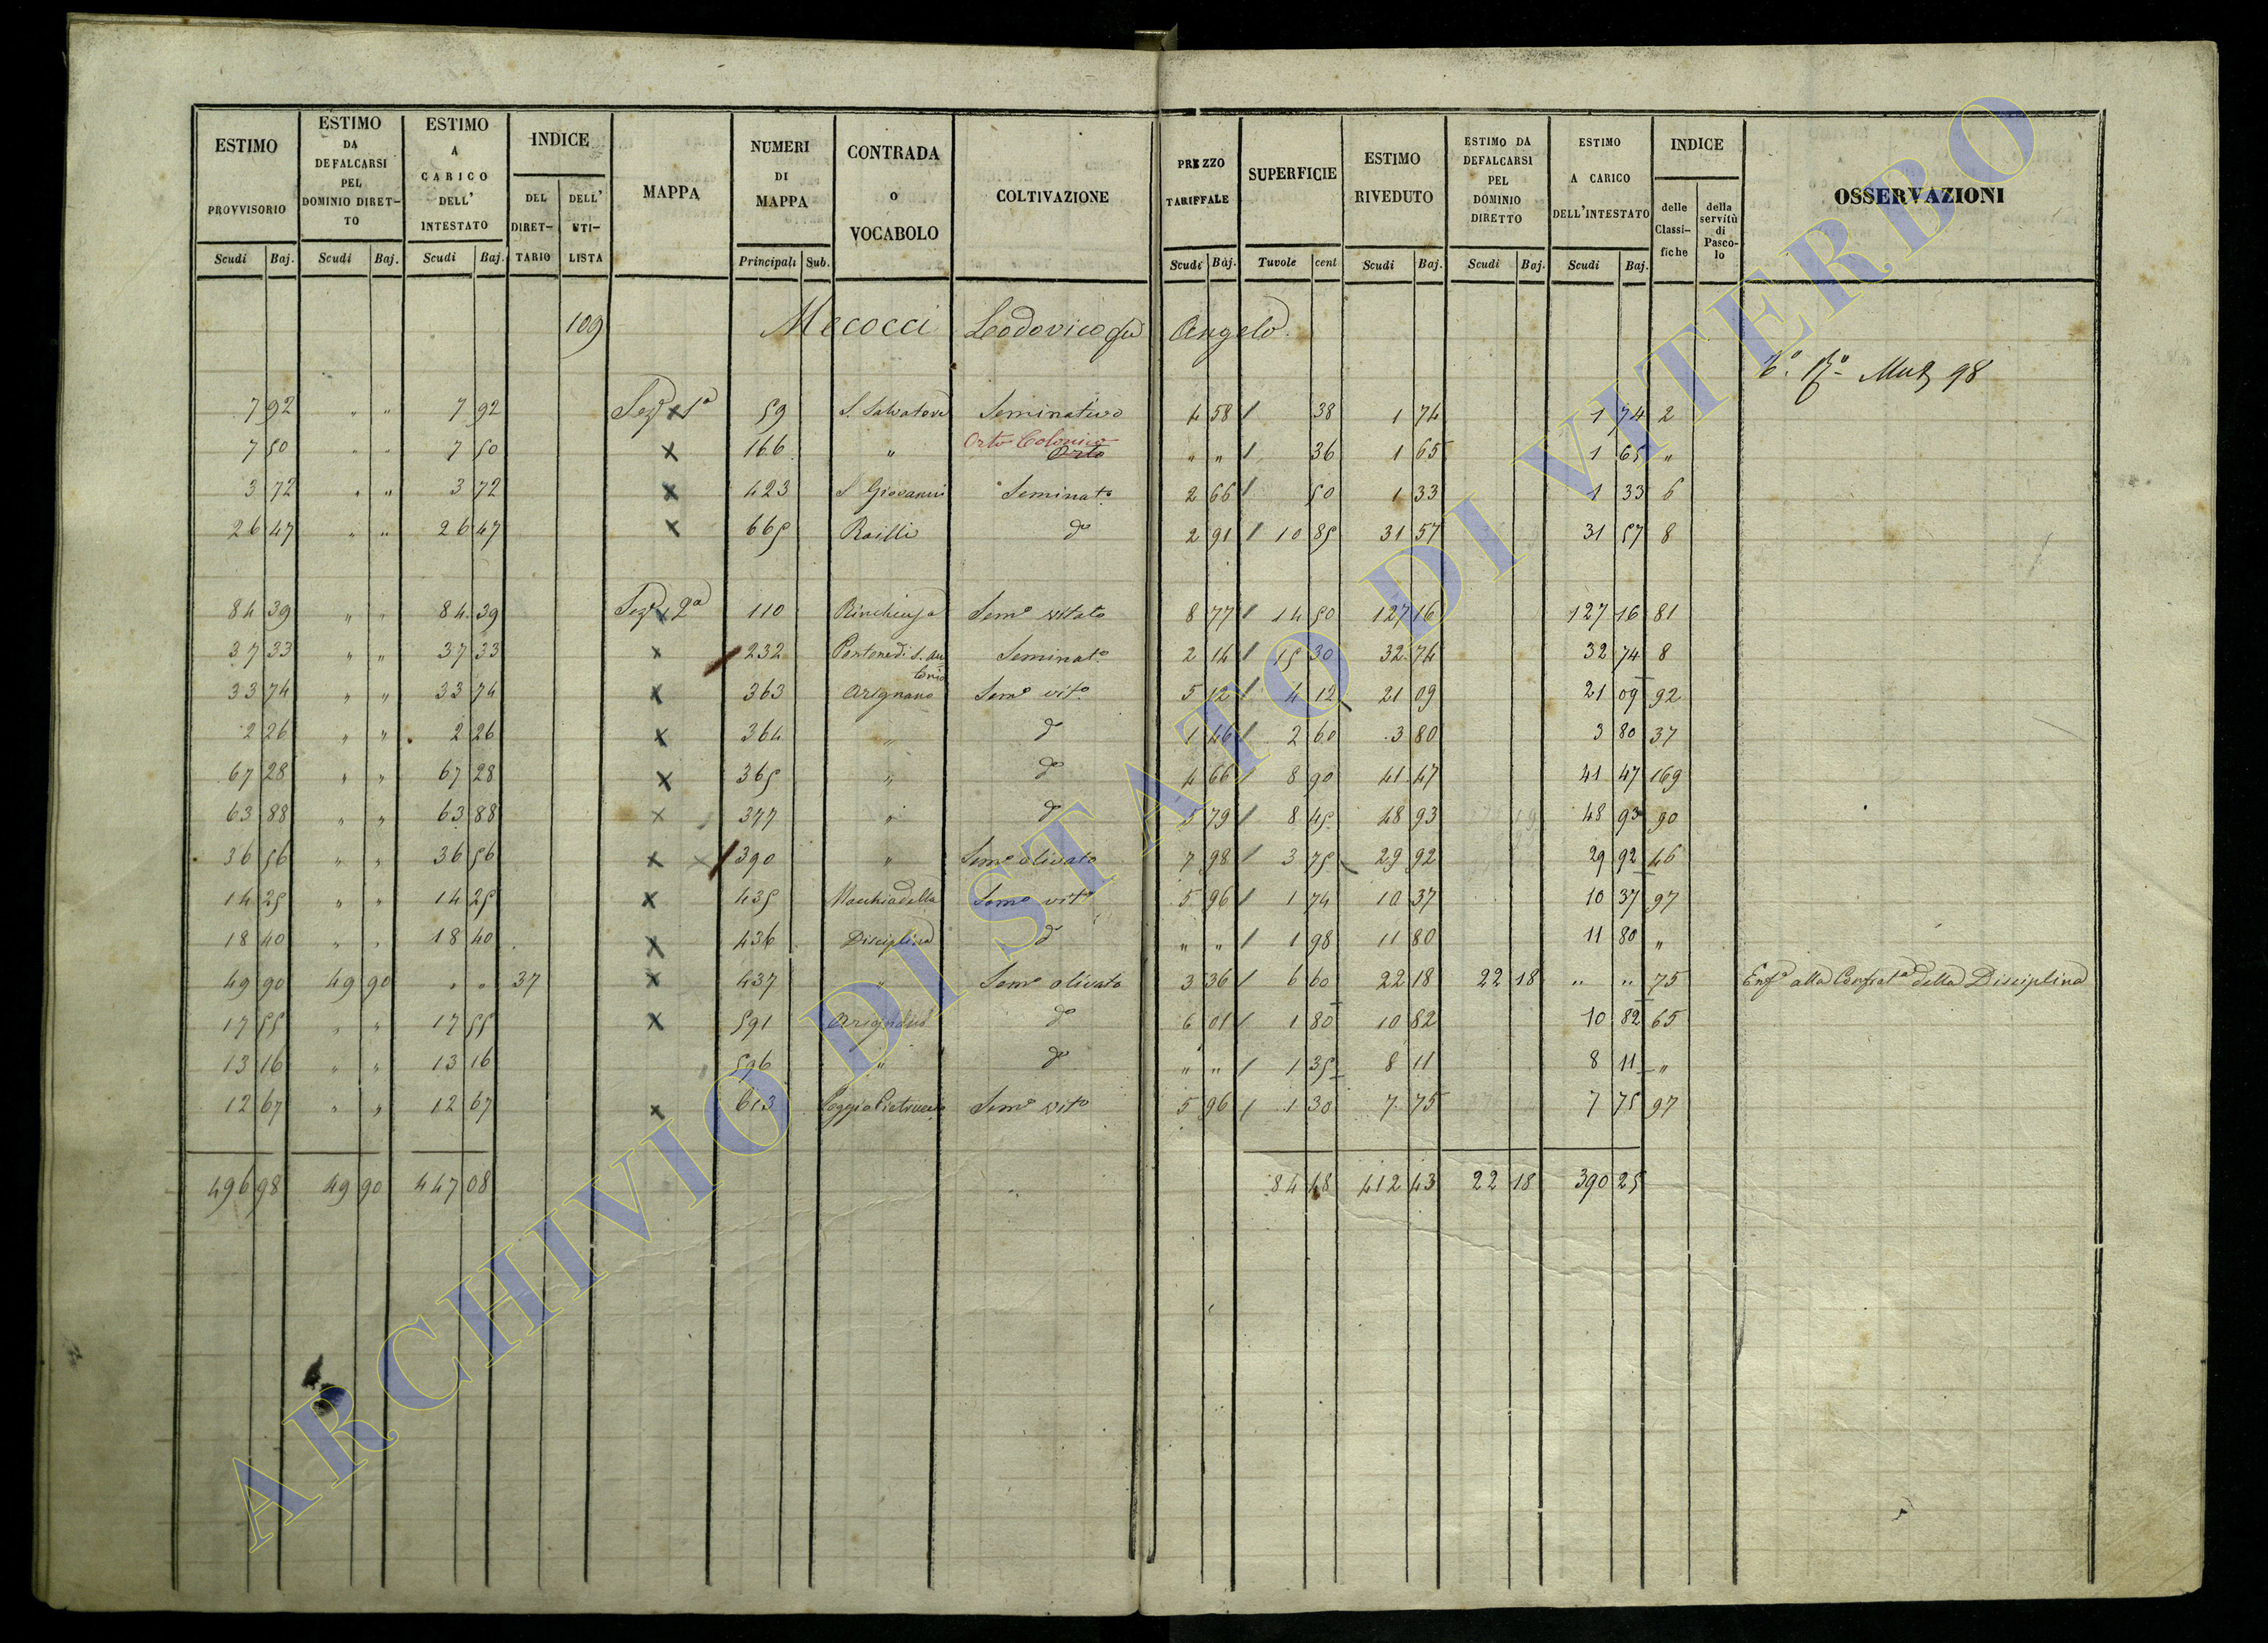 ESTIMO PROVVISORIO
ESTIMO DA DEFALCARSI PEL DOMINIO DIRETTO
ESTIMO A CARICO DELL' INTESTATO
INDICE
DEL DIRETTARIO
DELL' UTILISTA
MAPPA
NUMERI DI MAPPA
CONTRADA o VOCABOLO
COLTIVAZIONE
PREZZO TARIFFALE
SUPERFICIE
ESTIMO RIVEDUTO
ESTIMO DA DEFALCARSI PEL DOMINIO DIRETTO
ESTIMO A CARICO DELL'INTESTATO
INDICE
delle Classifiche
della servitù di Pascolo
OSSERVAZIONI
Scudi Baj. Scudi Baj. Scudi Baj. Principali Sub. Scudi Baj. Tavole cent Scudi Baj. Scudi Baj. Scudi Baj.
109 Mecocci Lodovico fu Angelo
Mut 98
7 92 " " 7 92 Sez.e 1a 59 S. Salvatore Seminativo 4 58 38 1 74 1 74 2
7 50 " " 7 50 x 166 " Orto Colonico Orto " " 36 1 65 1 65 "
3 72 " " 3 72 x 423 S Giovanni Seminato 2 66 50 1 33 1 33 6
26 47 " " 26 47 x 665 Railli do 2 91 10 85 31 57 31 57 8
84 39 " " 84 39 Sez.e 2a 110 Rinchiusa Semo vitato 8 77 14 50 127 16 127 16 81
37 33 " " 37 33 x 232 Pantane di S. Antonio Seminato 2 14 15 30 32 74 32 74 8
33 74 " " 33 74 x 363 Arignano Semo vito 5 12 4 12 21 09 21 09 92
2 26 " " 2 26 x 364 " do 1 46 2 60 3 80 3 80 37
67 28 " " 67 28 x 365 " do 4 66 8 90 41 47 41 47 169
63 88 " " 63 88 x 377 " do 5 79 8 45 48 93 48 93 90
36 56 " " 36 56 x 390 " Semo olivato 7 98 3 75 29 92 29 92 46
14 25 " " 14 25 x 435 Macchia della Semo vito 5 96 1 74 10 37 10 37 97
18 40 " " 18 40 x 436 Disciplina do " " 1 98 11 80 11 80 "
49 90 49 90 " " 37 x 437 " Semo olivato 3 36 6 60 22 18 22 18 " " 75 Enfa alla Confrata della Disciplina
17 55 " " 17 55 x 591 Arignano do 6 01 1 80 10 82 10 82 65
13 16 " " 13 16 596 " do " " 1 35 8 11 8 11 "
12 67 " " 12 67 x 613 Poggio Semo vito 5 96 1 30 7 75 7 75 97
496 98 49 90 447 08 84 48 412 43 22 18 390 25
ARCHIVIO DI STATO DI VITERBO